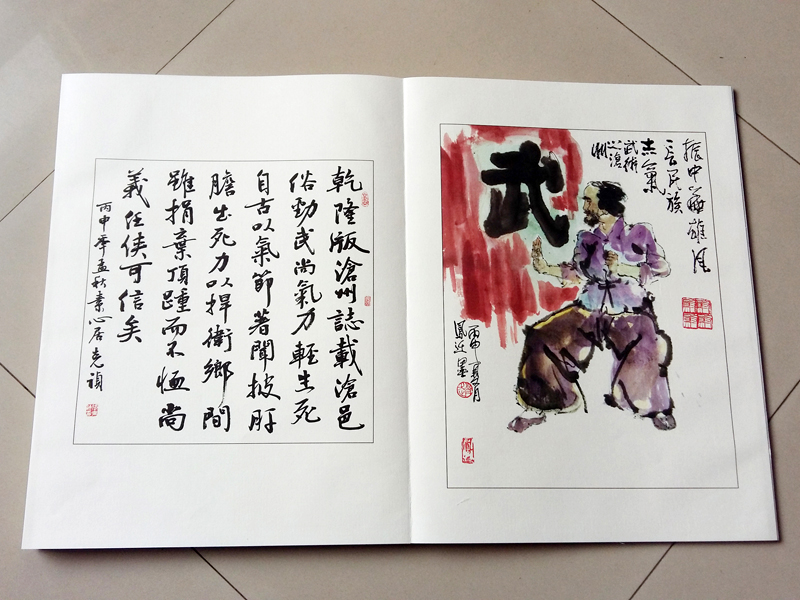 乾隆版滄州誌載滄邑
俗勁武尚氣力輕生死
自古以氣節著聞披肝
膽出死力以捍衛鄉閭
雖捐棄頂踵而不恤尚
義任俠可信矣
丙申年孟秋素心居克禎
振中華雄風
言民族
志氣
武術
之滄
州
武
丙申夏月
鳳近墨